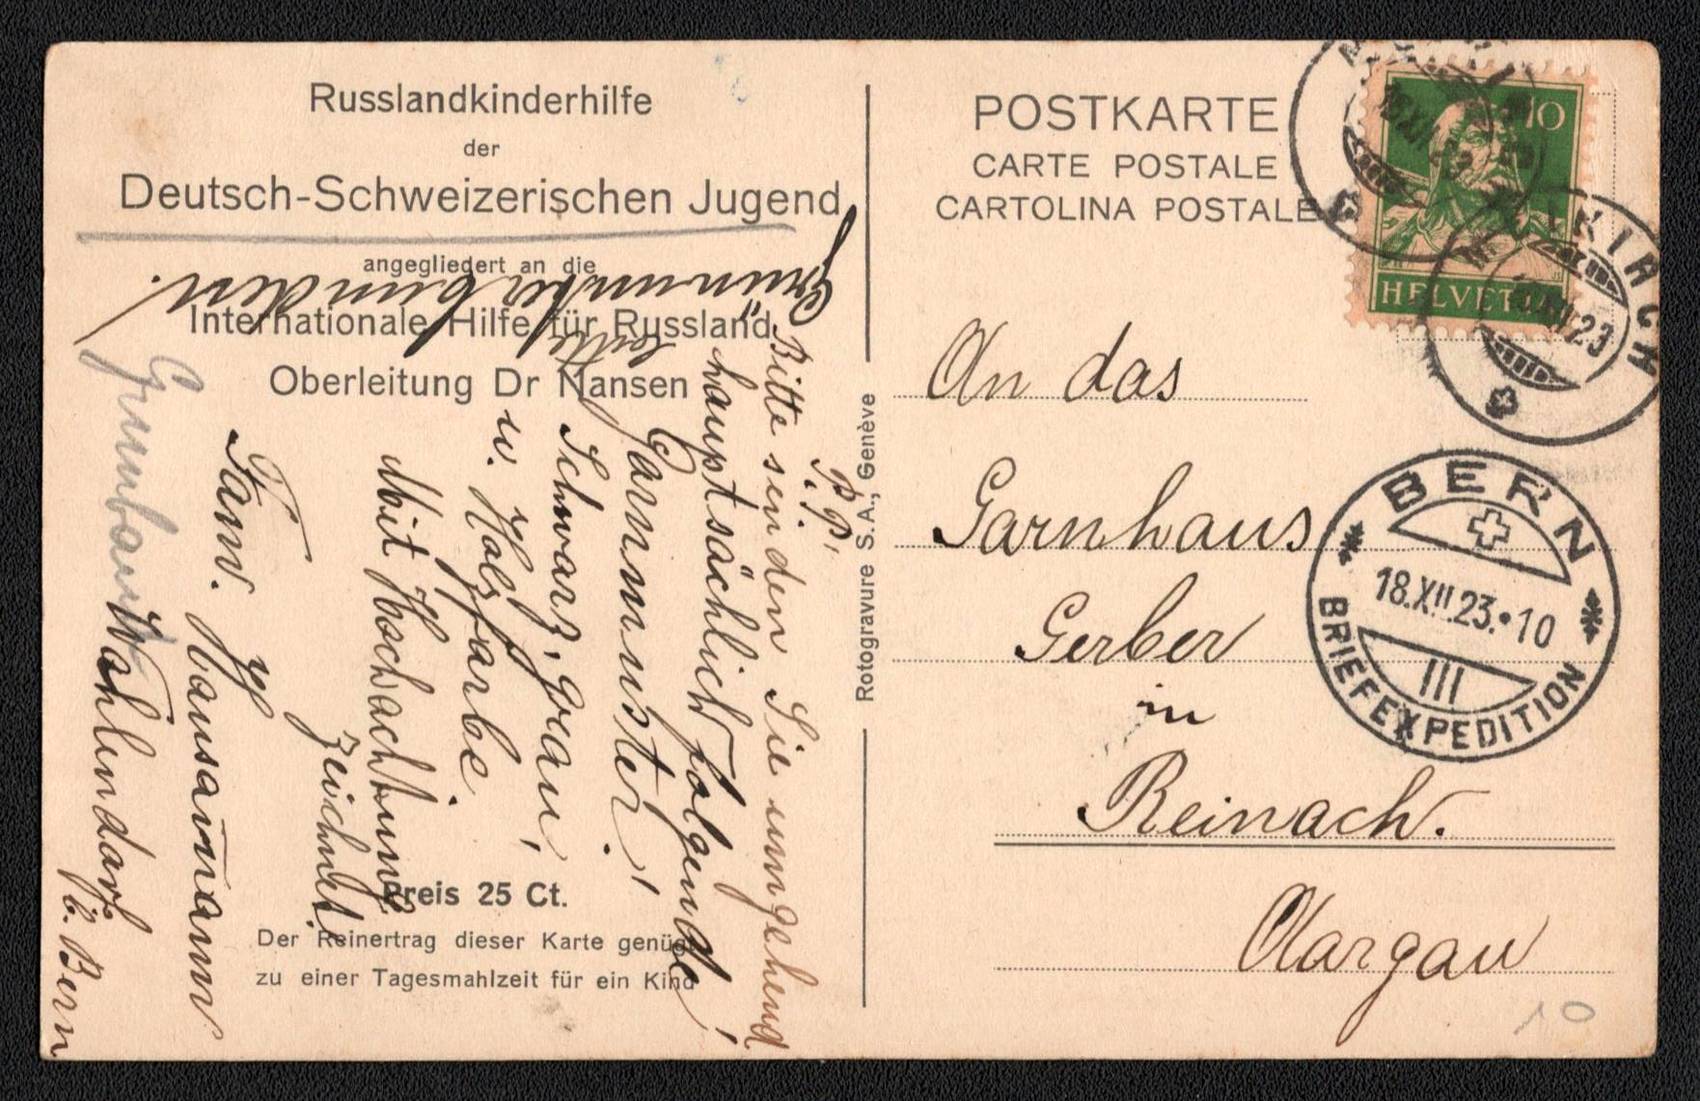 Russlandkinderhilfe
der
Deutsch-Schweizerischen Jugend
angegliedert an die
Internationale Hilfe für Russland
Oberleitung Dr Nansen
Preis 25 Ct.
Der Reinertrag dieser Karte genügt
zu einer Tagesmahlzeit für ein Kind
P. P.
Bitte senden Sie umgehend
hauptsächlich folgende
Garnmuster!
Schwarz, grau,
u. Holzfarbe.
Mit Hochachtung
zeichnet.
Fam. Hausamann
Wahlendorf
b. Bern
Rotogravure S. A., Genève
POSTKARTE
CARTE POSTALE
CARTOLINA POSTALE
10
HELVETIA
An das
Garnhaus
Gerber
in
Reinach.
Aargau
BERN
18.XII.23.•10
III
BRIEFEXPEDITION
10